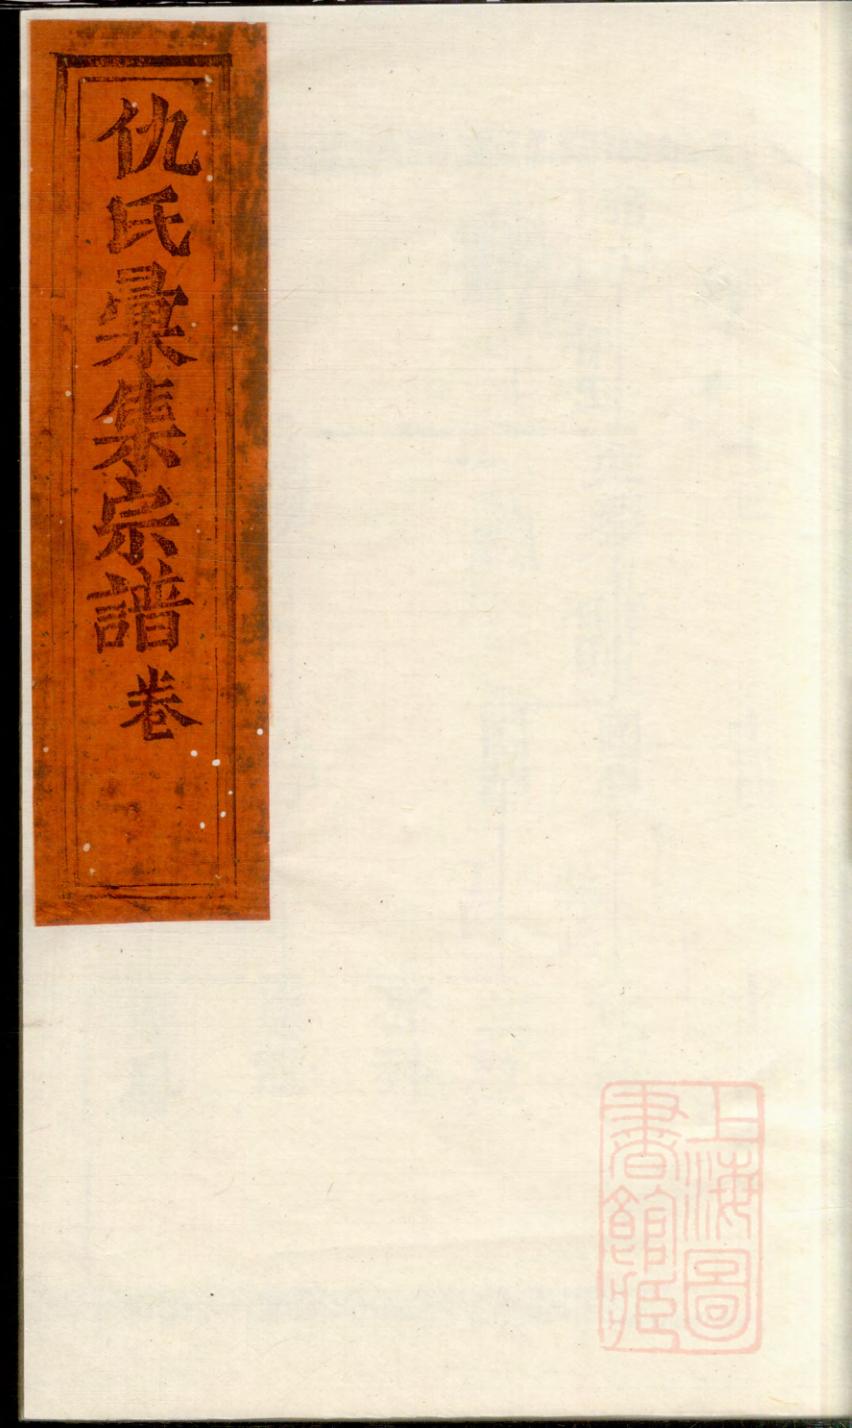 仇氏彙集宗譜 卷
上海圖
書館藏